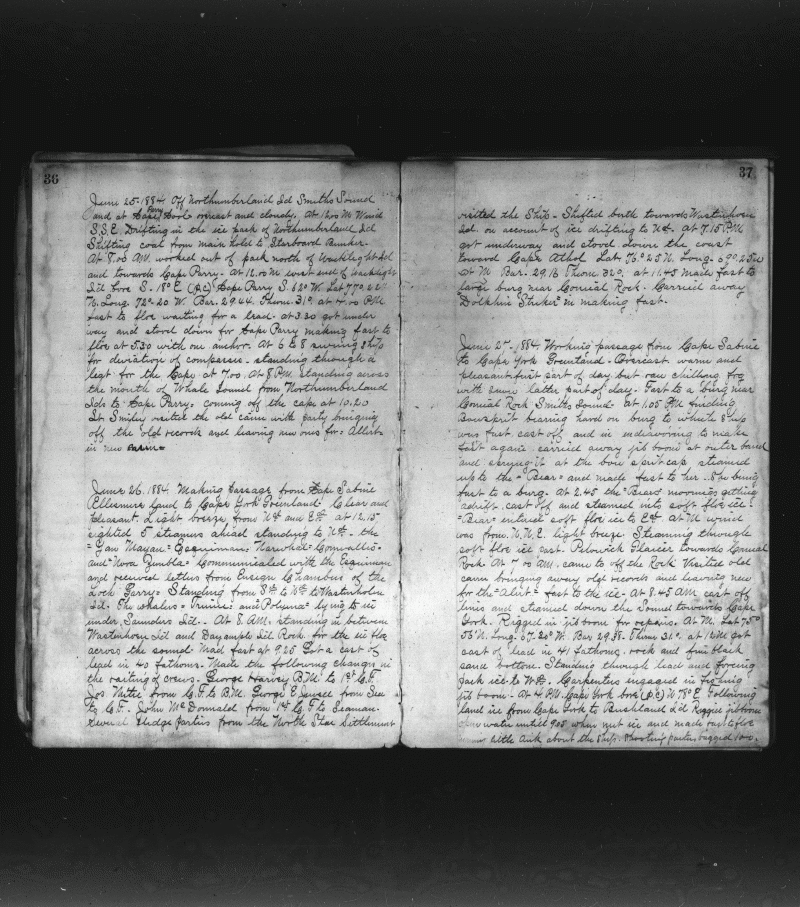 36
June 25. 1884 Off Northumberland Isd Smiths Sound
and at Cape Parry overcast and cloudy. At 12.00 M Wind
S.S.E. Drifting in the ice pack off Northumberland Isd
Shifting coal from main hold to Starboard Bunker.
At 8.00 AM. worked out of pack north of Hackluyt Isd
and towards Cape Parry. At 12.00 m west end of Hackluyt
Isd bore S. 18° E (p.c) Cape Parry S. 62° W. Lat 77°
N. Long. 72°-20 W. Bar. 29.44. Thom. 31° at 4.00 PM.
fast to floe waiting for a lead. at 5.30 got under
way and stood down for Cape Parry making fast to
floe at 5.50 with one anchor. At 6 to 8 swung ship
for deviation of compasses. standing through a
lead for the Cape at 7.00. At 8 PM standing across
the mouth of Whale Sound from Northumberland
Isds to Cape Parry. coming off the cape at 10.20
Lt. Smiley visited the old cairn with party bringing
off the old records and leaving new ones for "Alert"
in new cairn
June 26. 1884. Making passage from Cape Sabine
Ellesmere Land to Cape York Greenland. Clear and
pleasant. Light breeze from Nd and Ed. at 12.15
sighted 5 steamers ahead standing to Nd. the
"Jan Mayen" "Esquimau" "Narwhal" "Cornwallis"
and "Nova Zembla" Communicated with the Esquimau
and received letters from Ensign Chambers of the
Loch Garry. Standing from Sd to Wd to Wolstenholm
Isd. The whalers "Triune" and "Polynia" lying to ice
under Saunders Isd. At 8 AM. standing in between
Wolstenholm Isd and Dalrymple Isd Rock. for the ice floe
across the sound. Made fast at 9.25 Got a cast of
lead in 40 fathoms. Made the following changes in
the rating of crew. George Harvey B.M. to 1st C.F.
Jos. Nuttle from C.F. to B.M. George E. Jewell from Sea
to C.F. John McDonnald from 1st C.F. to Seaman.
Several sledge parties from the North Star Settlement
37
visited the Ship. Shifted berth towards Wolstenholm
Isd. on account of ice drifting to Nd. At 7.15 PM
got underway and stood down the coast
toward Cape Athol Lat 76° 25 N. Long. 69° 25 W
At M Bar. 29.16 Thom 32°. at 11.45 made fast to
large burg near Conical Rock. Carried away
"Dolphin Striker" in making fast.
June 27. 1884 Working passage from Cape Sabine
to Cape York Greenland. Overcast warm and
pleasant first part of day. but raw chilling fog
with snow latter part of day. Fast to a burg near
Conical Rock Smiths Sound. At 1.05 PM finding
Bowsprit bearing hard on burg to which ship
was fast. cast off and in endeavoring to make
fast again carried away jib boom at outer band
and sprung it at the bow sprit cap. steamed
up to the "Bear" and made fast to her. She being
fast to a burg. At 2.45 the "Bears" moorings getting
adrift. cast off and steamed into soft floe ice.
"Bear" entered soft floe ice to Ed. At M wind
was from N.N.E. light breeze. Steaming through
soft floe ice east. Petowick Glacier towards Conical
Rock. At 7.00 AM. came to off the Rock. Visited old
cairn bringing away old records and leaving new
for the "Alert" fast to the ice. At 8.45 AM. cast off
lines and steamed down the Sound towards Cape
York. Rigged in jib boom for repairs. At M. Lat 75°
56' N. Long. 67.20° W. Bar. 29.38. Thom. 32°. at 12 M got
cast of lead in 41 fathoms. rock and fine black
sand bottom. Standing through lead and forcing
pack ice to Wd. Carpenters engaged in fishing
jib boom. At 4 PM. Cape York bore (p.c) N. 78° E. Following
land ice from Cape York to Bushland Isd Rigged jib boom
open water until 9.05 when met ice and made fast to floe
Seeing little Auk about the Ship. Shooting parties bagged 100.